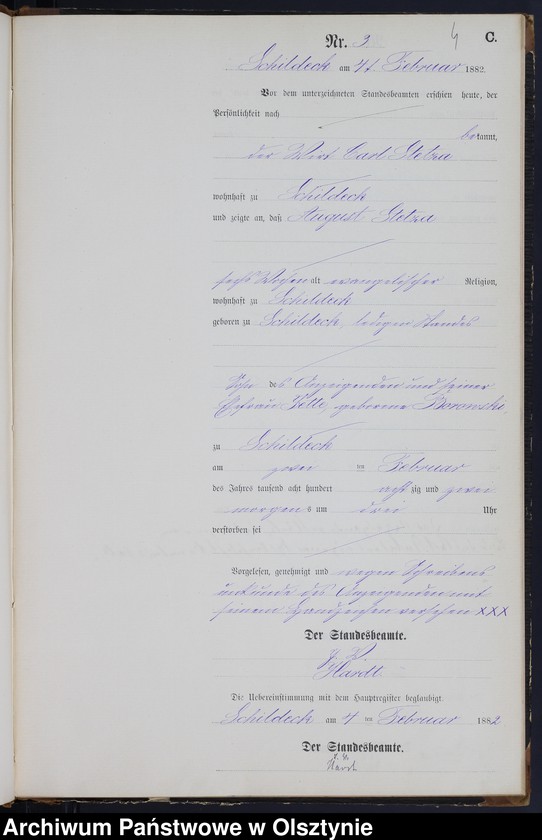 4 C.
Nr. 3
Schildeck am 4t Februar 1882.
Vor dem unterzeichneten Standesbeamten erschien heute, der
Persönlichkeit nach
bekannt,
der Wirt Carl
wohnhaft zu Schildeck
und zeigte an, daß August
sechs Wochen alt evangelischer Religion,
wohnhaft zu Schildeck
geboren zu Schildeck, ledigen Standes
Sohn des Anzeigenden und seiner
Ehefrau geborene Borowski,
zu Schildeck
am zwei ten Februar
des Jahres tausend acht hundert achtzig und zwei
morgens um drei Uhr
verstorben sei
Vorgelesen, genehmigt und wegen Schreibens
unkunde des Anzeigenden mit
seinem Handzeichen versehen XXX
Der Standesbeamte.
Hardt
Die Uebereinstimmung mit dem Hauptregister beglaubigt.
Schildeck am 4 ten Februar 1882
Der Standesbeamte.
Hardt
Archiwum Państwowe w Olsztynie